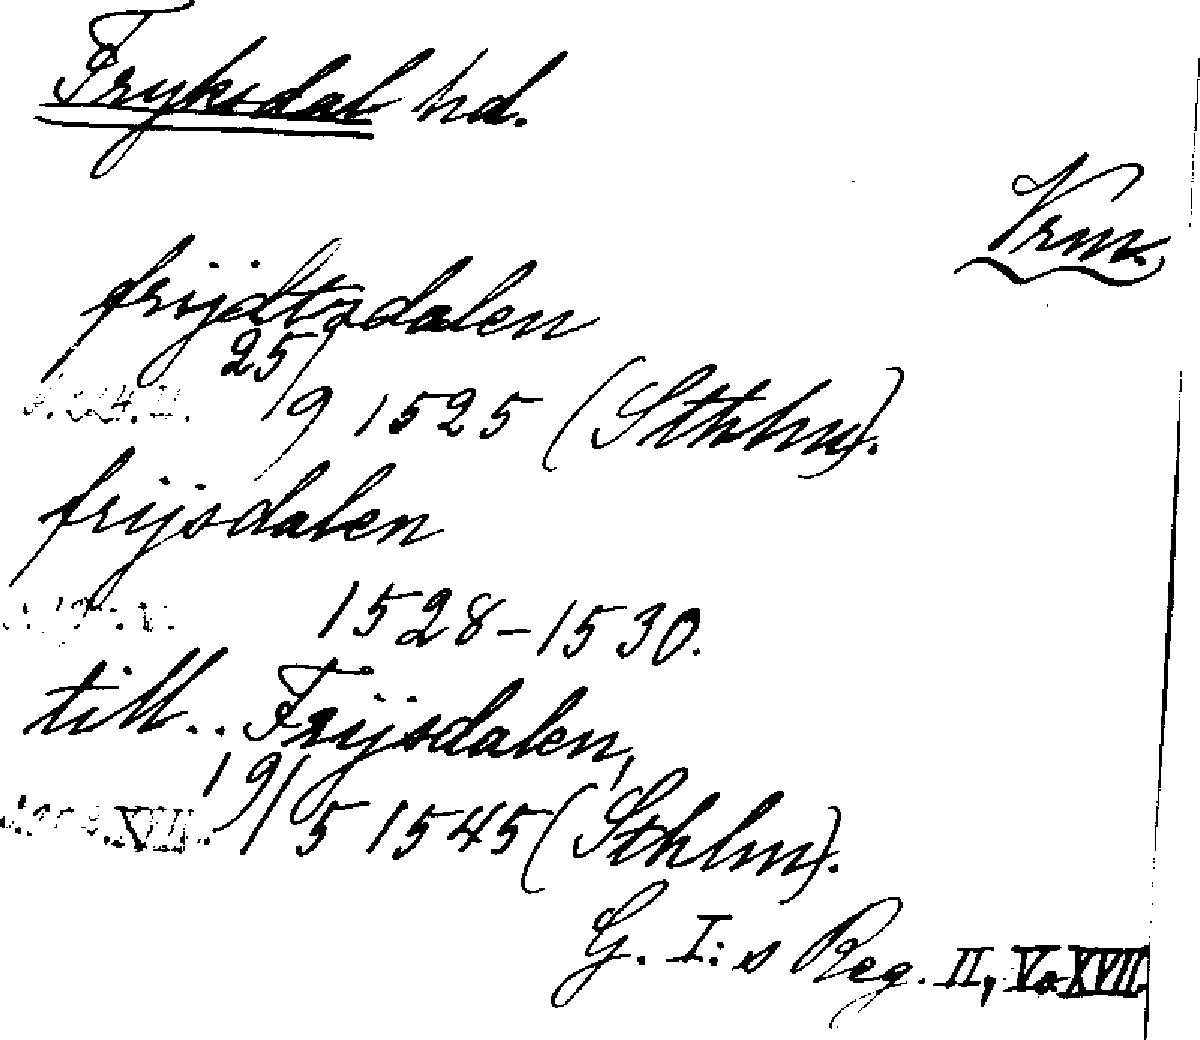 Fryksdal hd.
Vrm.
frijdtzdalen
25/9 1525 (Sthlm).
frijsdalen
1528–1530.
till.. Frijsdalen,
19/5 1545 (Sthlm).
G. I:s Reg. II, V o XVII.